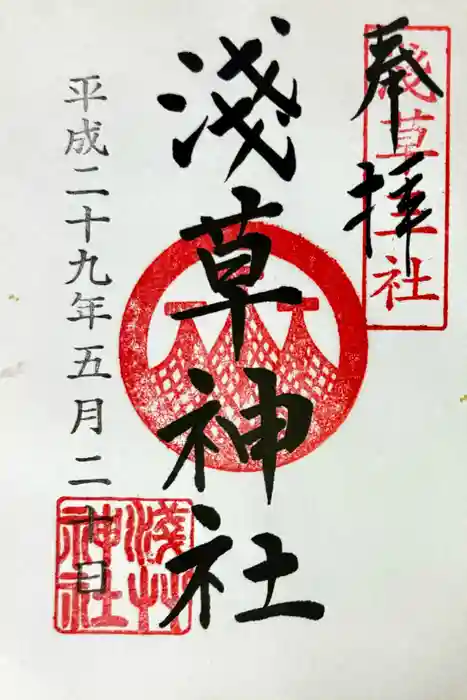 奉拝
淺草三社
淺草神社
平成二十九年五月二十日
淺草
神社